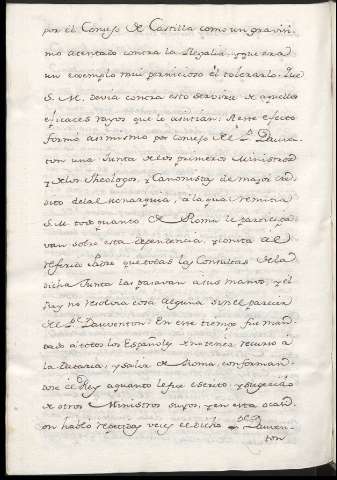 por el Consejo de Castilla como un gravisi-
mo atentado contra la Regalia, y que era
un exemplo mui pernicioso el tolerarlo. Que
S. M. devia contra esto servirse de aquellos
eficaces rayos que le asistian; A este efecto
formó asimismo por consejo del P. Dauven-
ton una Junta de los primeros Ministros
y de los Theologos, y Canonistas de maior cre-
dito de la Monarquia, á la qual remitia
S. M. todo quanto de Roma le participa-
van sobre esta dependencia, y consta al
referido Padre que todas las Consultas de la
dicha Junta las pasavan a sus manos, y el
Rey no resolvia cosa alguna sin el parecer
del P. Dauventon. En este tiempo fue man-
dado a todos los Españoles no tener recurso á
la Dataria, y salir de Roma, conforman-
dose el Rey a quanto le fue escrito, y sugerido
de otros Ministros suyos, y en esta ocasi-
on habló repetidas veces el dicho P. Dauven-
ton